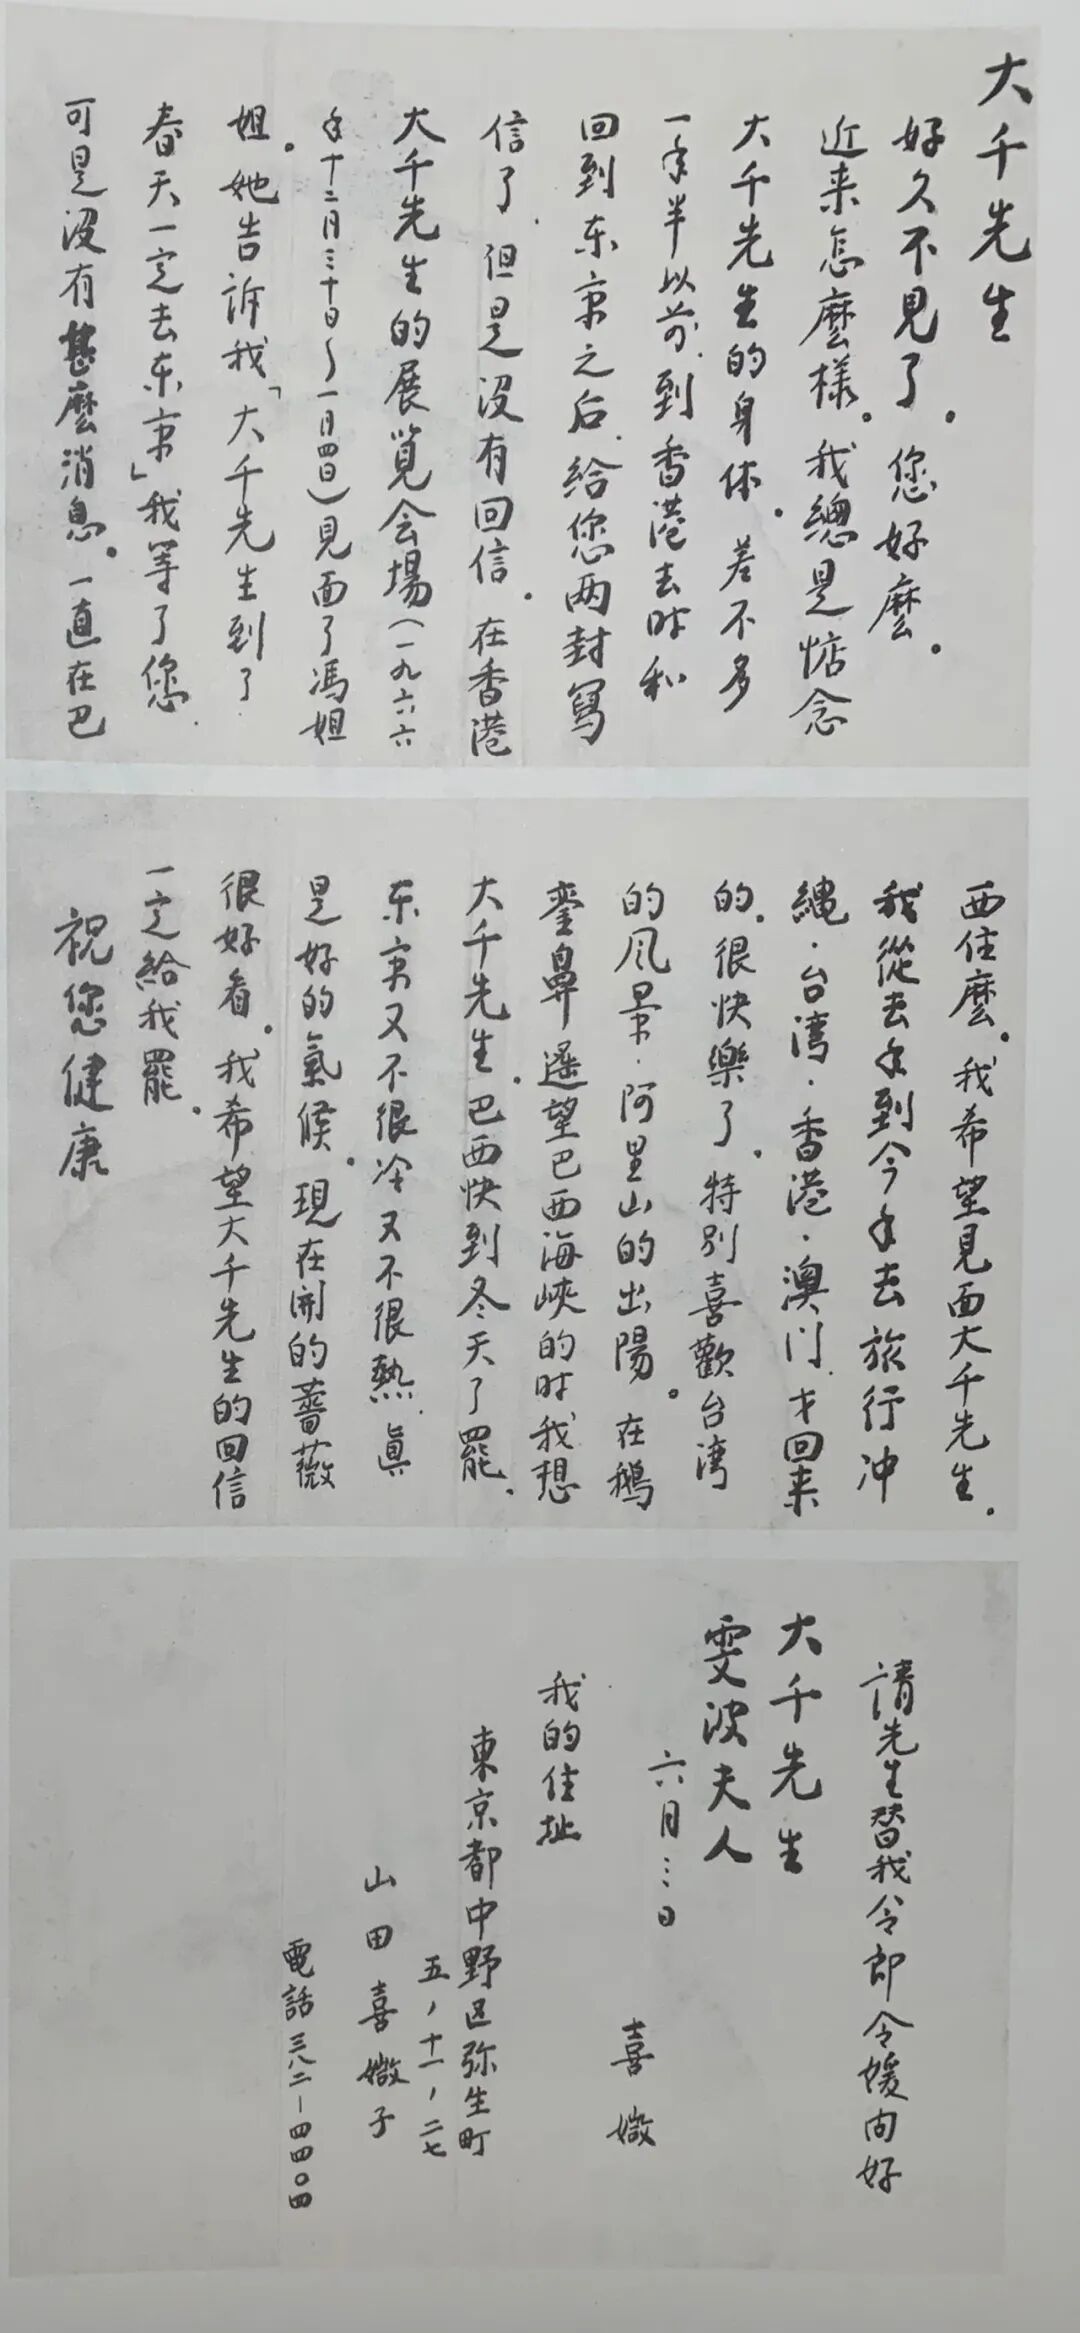 大千先生
好久不見了。您好麼。
近来怎麼樣。我總是惦念
大千先生的身体。差不多
一年半以前、到香港去时和
回到东京之后、给您两封寫
信了、但是没有回信。在香港
大千先生的展覧会場（一九六六
年十二月三十日〜一月四日）見面了馮姐
姐。她告诉我「大千先生到了
春天一定去东京」我等了您、
可是没有甚麼消息。一直在巴
西住麼。我希望見面大千先生。
我從去年到今年去旅行冲
縄·台湾·香港·澳门、才回来
的。很快樂了。特別喜歡台湾
的风景·阿里山的出陽。在鵝
銮鼻遥望巴西海峽的时我想
大千先生、巴西快到冬天了罷、
东京又不很冷又不很熱、眞
是好的氣候。現在開的薔薇
很好看。我希望大千先生的回信
一定給我罷。
祝您健康
請先生替我令郎令媛向好
大千先生
雯波夫人
六月三日
喜媺
我的住址
東京都中野区弥生町
五ノ十一ノ二七
山田喜媺子
電話三八二-四四〇四